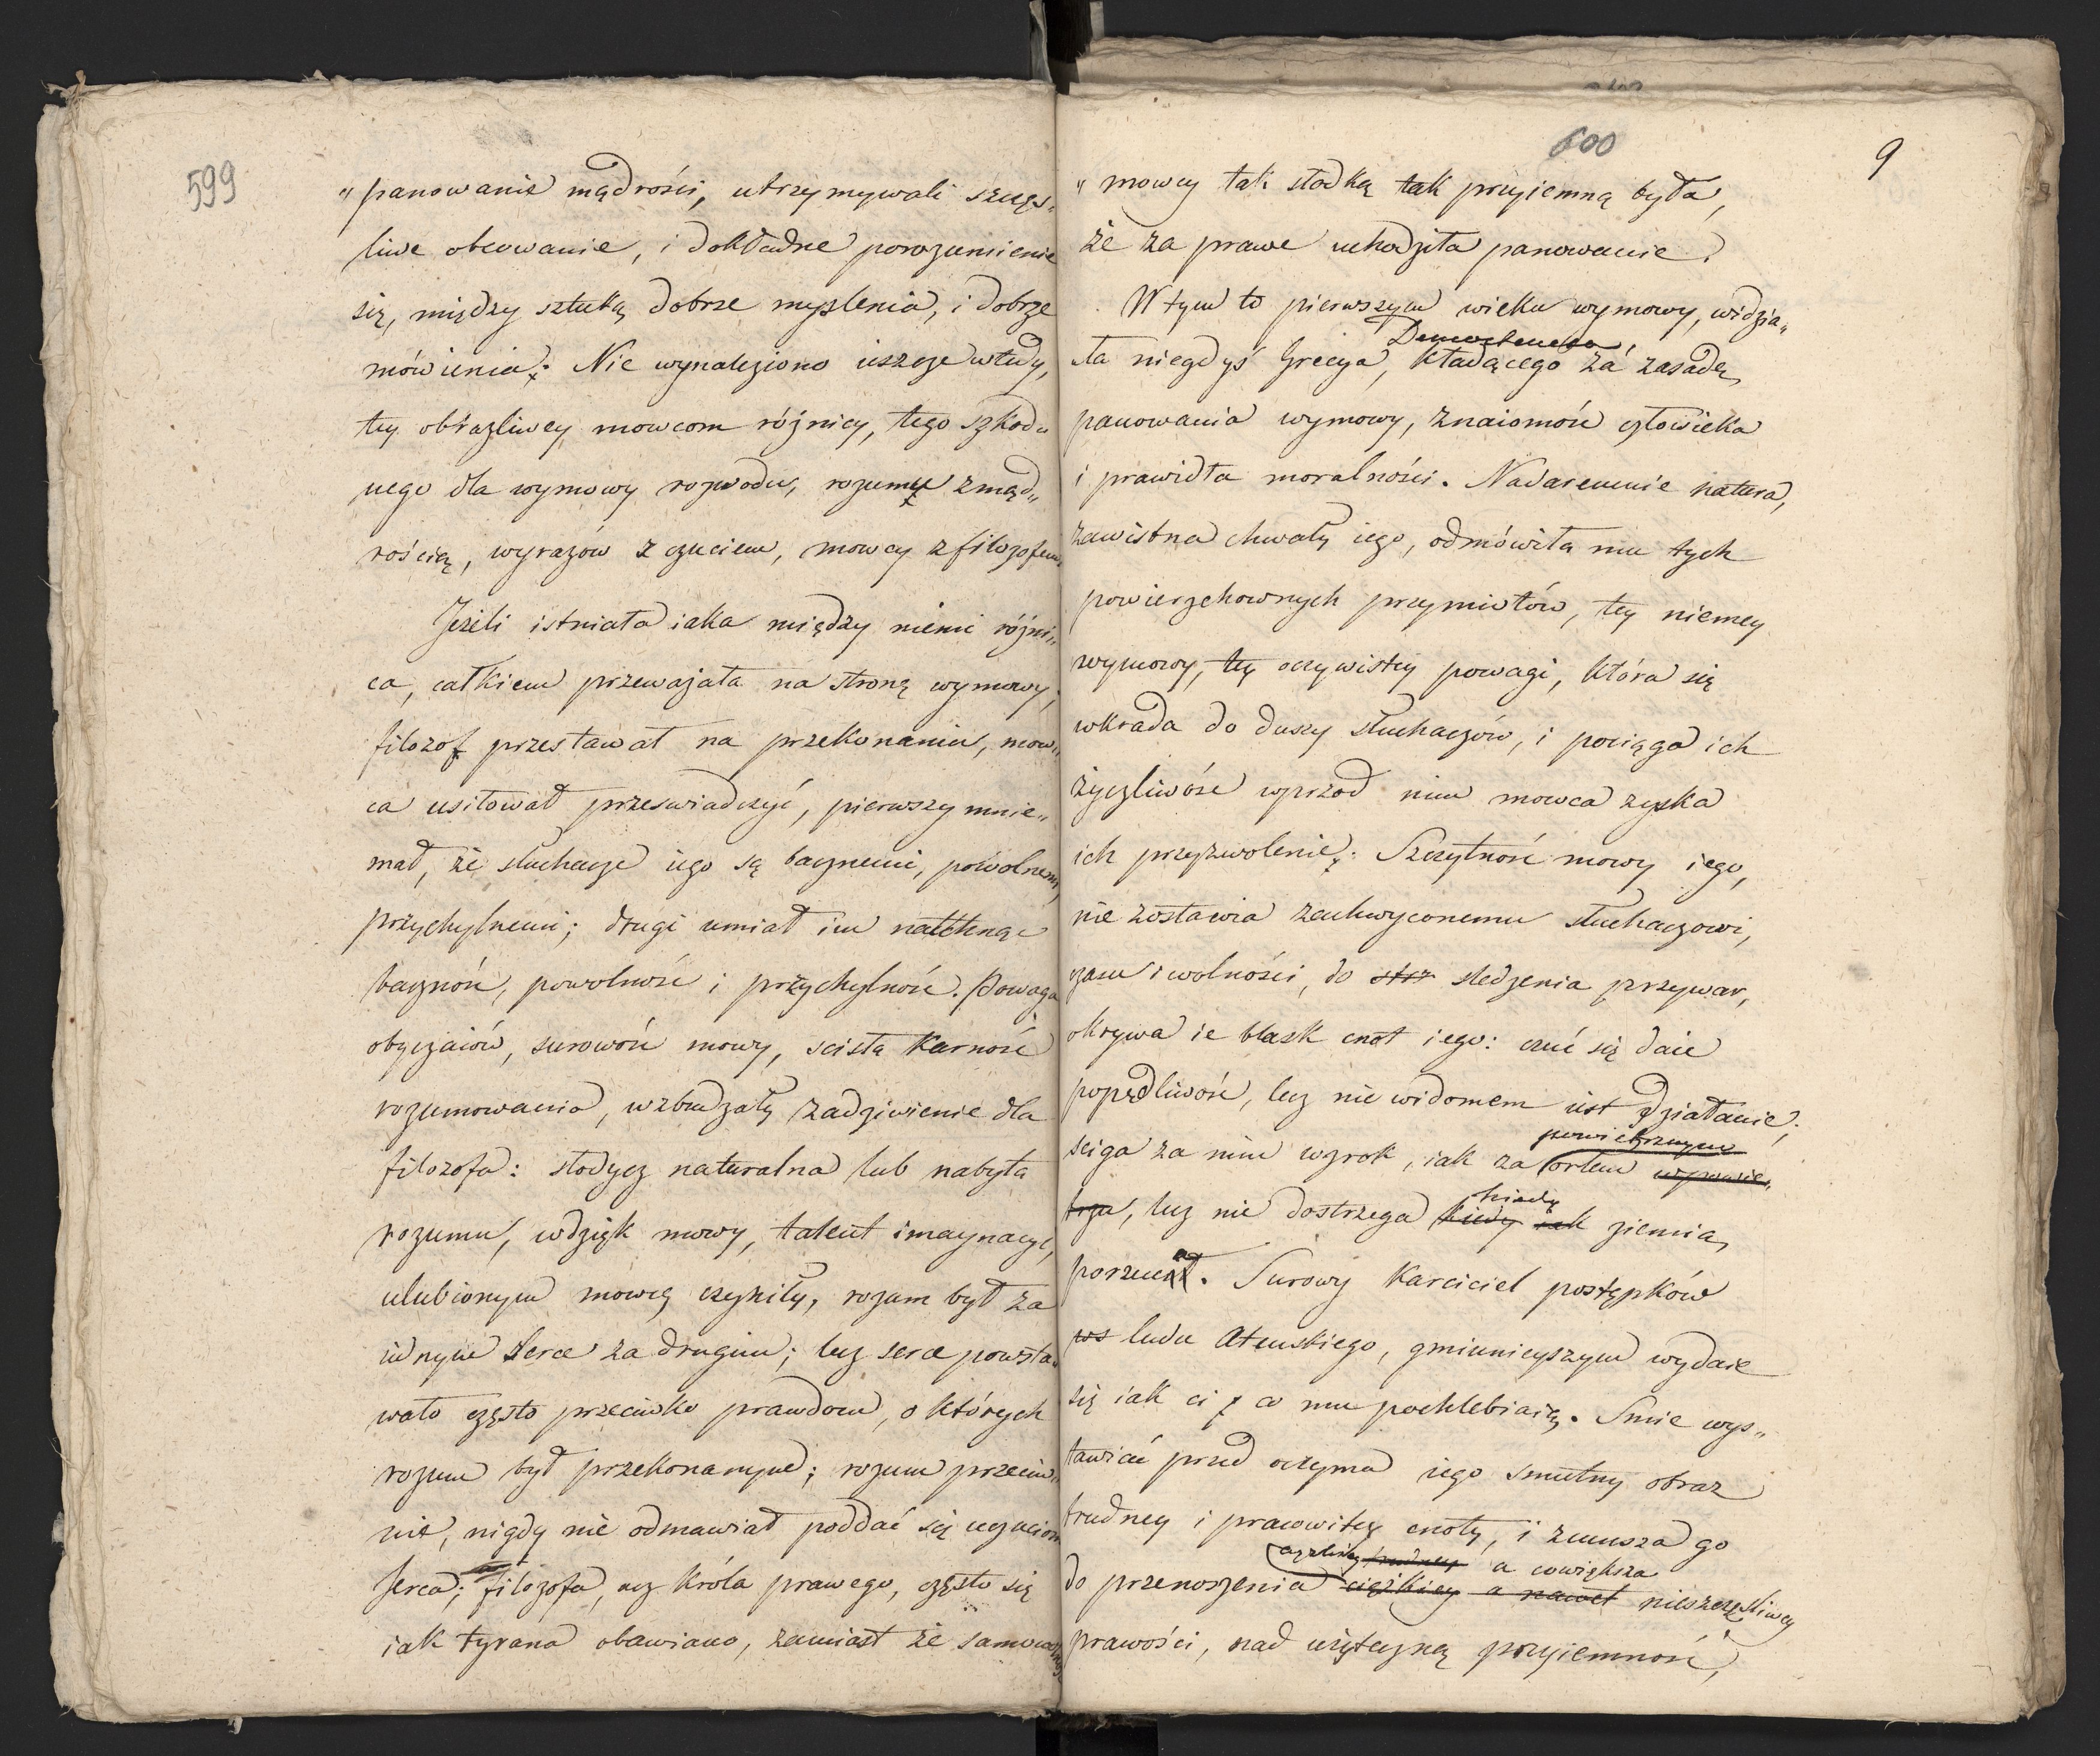 599
„ panowanie mądrości, utrzymywali szczęs„
liwe obcowanie, i dokładne porozumienie
się, między sztuką dobrze myslenia, i dobrze
mówienia: Nie wynaleziono ieszcze wtedy,
tey obraźliwey mowcom różnicy, tego szkod„
nego dla wymowy rozwodu, rozumu z mąd„
rością, wyrazów z czuciem, mowcy z filozofem.
Jeżeli istniała iaka między niemi różni„
ca, całkiem przeważała na stronę wymowy;
filozof przestawał na przekonaniu, mow„
ca usiłował przeswiadczyć, pierwszy mnie„
mał, że słuchacze iego są bacznemi, powolnemi,
przychylnemi; drugi umiał im natchnąć
baczność, powolność i przychylność. Powaga
obyczaiów, surowość mowy, scisła karność
rozumowania, wzbudzały zadziwienie dla
filozofa: słodycz naturalna lub nabyta
rozumu, wdzięk mowy, talent imaynacyi,
ulubionym mowcę czyniły, rozum był za
iednym serce za drugim; lecz serce powsta„
wało często przeciwko prawdom, o których
rozum był przekonanym; rozum przeciw„
nie, nigdy nie odmawiał poddać się uczuciom
serca; filozofa, acz króla prawego, często się
iak tyrana obawiano, zamiast że samowładność
600
9
„ mowcy tak słodką tak przyiemną była,
że za prawe uchodziła panowanie.
W tym to pierwszym wieku wymowy, widzia„
Demostenesa,
ła niegdyś Grecya, kładącego za zasadę
panowania wymowy, znaiomość człowieka
i prawidła moralności. Nadaremnie natura,
zawistna chwały iego, odmówiła mu tych
powierzchownych przymiotów, tey niemey
wymowy, tey oczywistey powagi, która się
wkrada do duszy słuchaczów, i pociąga ich
życzliwość wprzod nim mowca zyska
ich przyzwolenie: Szczytność mowy iego,
nie zostawia zachwyconemu słuchaczowi,
czasu i wolności, do sledzenia przywar,
okrywa ie blask cnot iego: czuć się daie
popędliwość, lecz nie widomem iest działanie;
powietrznym
sciga za nim wzrok, iak za orłem w powie„
trzu, lecz nie dostrzega kiedy iak ziemię
kiedy
porzucał. Surowy karciciel postępków
ws ludu Atenskiego, gminnieyszym wydaie
się iak ci co mu pochlebiaią. Smie wys„
tawiać przed oczyma iego smutny obraz
trudney i pracowitey cnoty, i zmusza go
trudney a cowiększa
do przenoszenia ciężkiey a nawet nieszczęśliwey
prawości, nad użyteczną przyiemność,